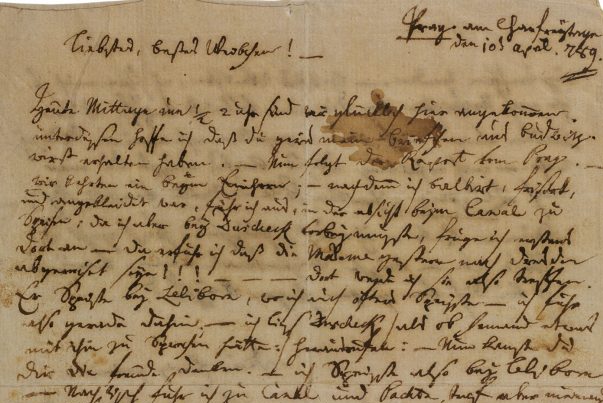 Prag am Charfreytage
den 10t April. 789.
Liebstes, bestes Weibchen! —
Heute Mittags um ½ 2 uhr sind wir glücklich hier angekommen.
unterdessen hoffe ich daß du gewis mein briefchen aus Budwitz
wirst erhalten haben. — Nun folgt der Rapport von Prag. —
wir kehrten ein beym Einhorn; — nachdem ich balbirt, frisirt,
und angekleidet war, fuhr ich aus, in der absicht beym Canal zu
Speisen; da ich aber bey Duscheck vorbey musste, frug ich erstens
dort an — da erfuhr ich daß die Madame gestern nach Dresden
abgereiset seye!!! — Dort werde ich sie also treffen.
Er Speiste bey Leliborn, wo ich auch öfters Speiste — ich fuhr
also gerade dahin. — ich ließ Duscheck /:als ob Jemand etwas
mit ihm zu Sprechen hätte:/ herausrufen: — Nun kannst Du
Dir die freude denken. — ich Speiste also bey Leliborn
— Nach tisch fuhr ich zu Canal und Pachta, traf aber niemand